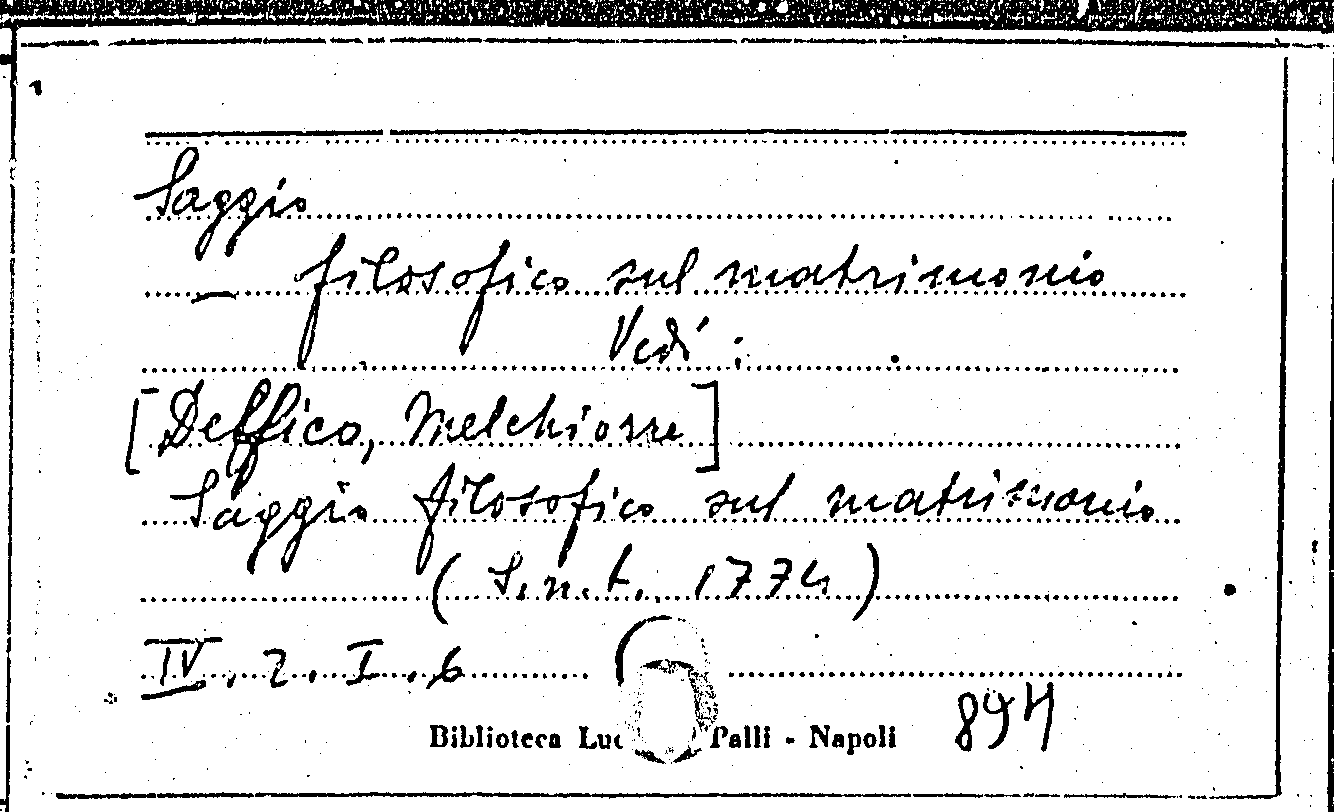 Saggio
— filosofico sul matrimonio
Vedi :
[Delfico, Melchiorre]
Saggio filosofico sul matrimonio
(S.n.t. 1774)
IV. 2. I. 6
Biblioteca Luc Palli - Napoli 894